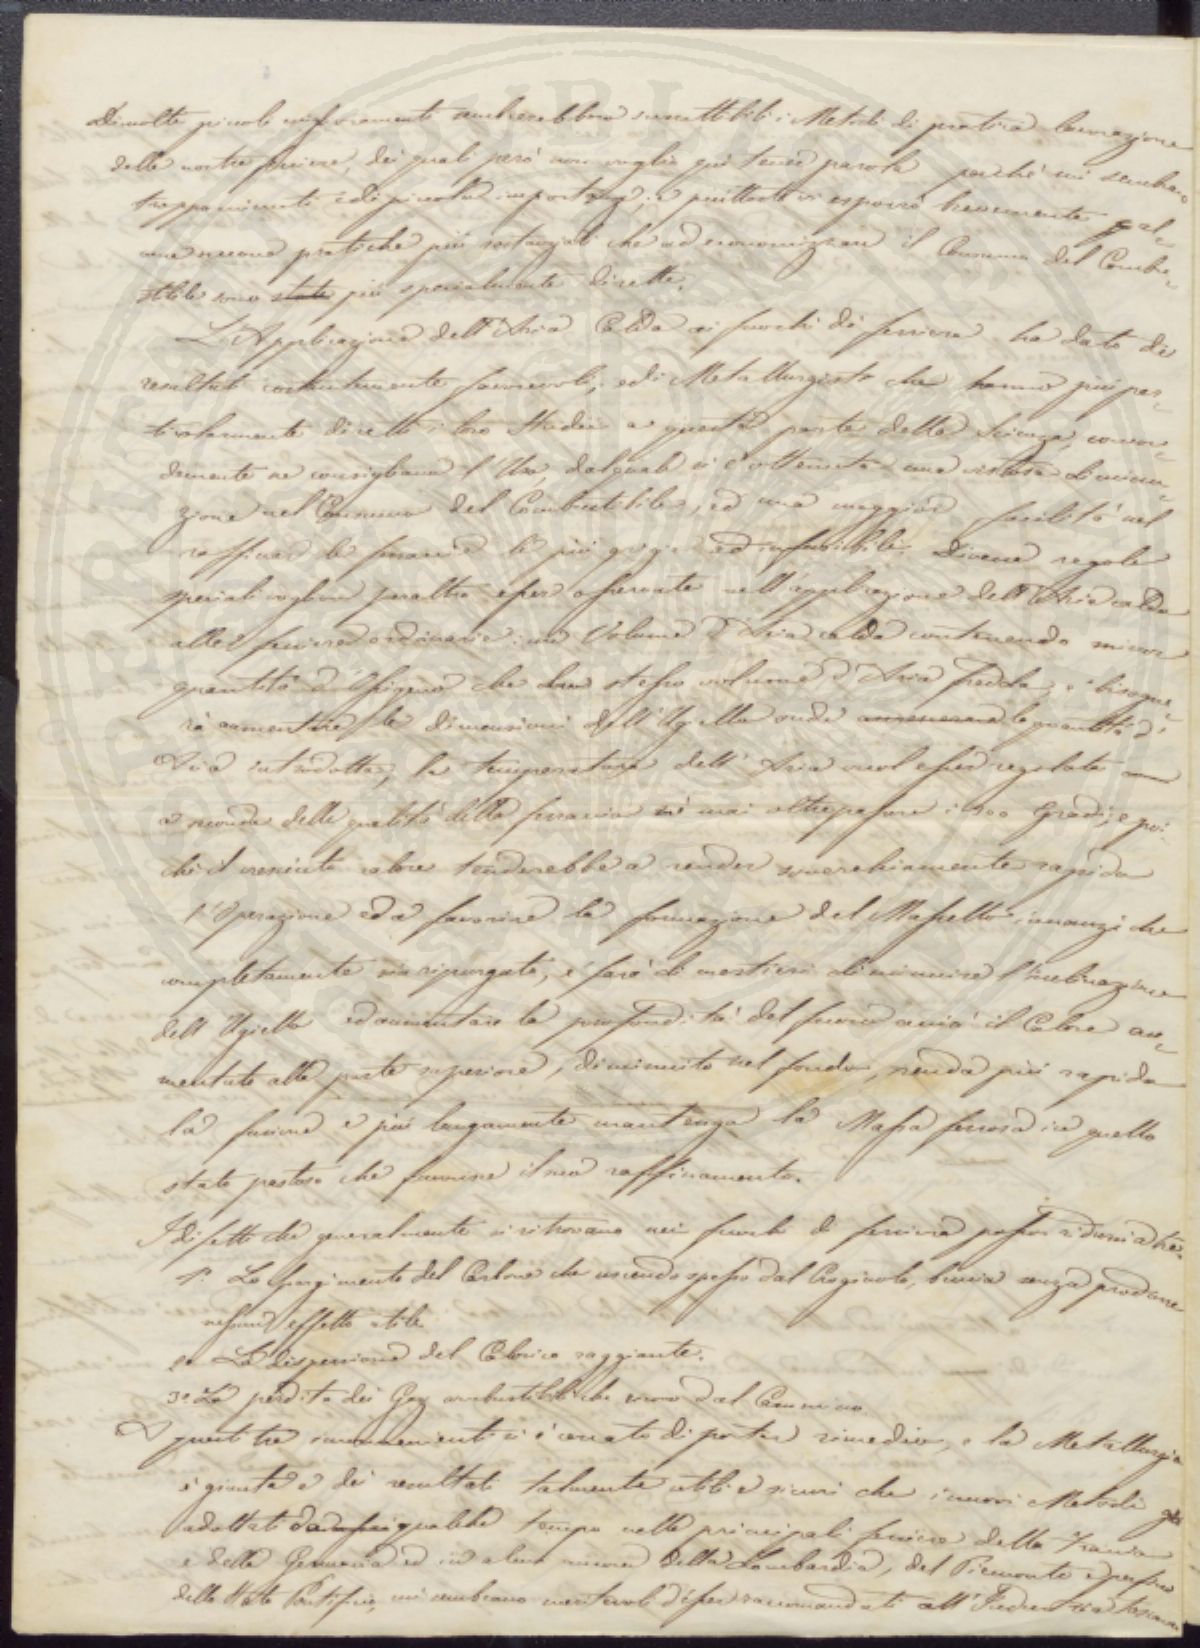 Di molte piccoli miglioramenti anche sarebbero suscettibili i Metodi di pratica lavorazione
delle nostre ferriere, dei quali però non voglio qui tener parola perchè mi sembrano
troppo minuti e di piccola importanza; e piuttosto vi esporrò brevemente qual-
une nuove pratiche più vantaggiose che ad economizzare il Consumo del Combu-
stibile sono state più specialmente dirette.
L'Applicazione dell'Aria Calda ai fuochi di ferriera ha dato dei
resultati costantemente favorevoli, ed i Metallurgisti che hanno più par-
ticolarmente diretti i loro Studii a questa parte della Scienza, concor-
demente ne consigliano l'Uso, dal quale si è ottenuta una vistosa diminu-
zione nel Consumo del Combustibile, ed una maggior facilità nel
raffinar le ferraccie le più grigie ed infusibili. Diverse regole
speciali vogliono peraltro esser osservate nell'applicazione dell'Aria calda
alle ferriere ordinarie: un Volume d'Aria calda contenendo minor
quantità d'Ossigeno che uno stesso volume d'Aria fredda, bisogne-
rà aumentare le dimensioni dell'Ugello onde accrescere la quantità d'
Aria introdotta, la temperatura dell'Aria vuol esser regolata
a seconda della qualità della ferraccia nè mai oltrepassare i 200 Gradi; e poi-
chè il cresciuto calore tenderebbe a render soverchiamente rapida
l'Operazione ed a favorire la formazione del Massello innanzi che
completamente sia ripurgato, farà di mestieri diminuire l'inclinazione
dell'Ugello ed aumentare la profondità del fuoco acciò il Calore au-
mentato alla parte superiore, diminuito nel fondo, renda più rapida
la fusione e più lungamente mantenga la Massa ferrosa in quello
stato pastoso che favorisce il suo raffinamento.
I difetti che generalmente si ritrovano nei fuochi di ferriera posson ridursi a tre.
1°. Lo sfuggimento del Carbone che uscendo spesso dal Crogiuolo, brucia senza produrre
nessun effetto utile
2°. La dispersione del Calorico raggiante.
3°. La perdita dei Gaz combustibili che escono dal Cammino.
A questi tre inconvenienti si è cercato di portar rimedio, e la Metallurgia
è giunta a dei resultati talmente utili e sicuri che i nuovi Metodi già
adottati da qualche tempo nelle principali ferriere della Francia
e della Germania ed in alcune ancora della Lombardia, del Piemonte e perfino
dello Stato Pontificio, mi sembrano meritevoli d'esser raccomandati all'Industria toscana.